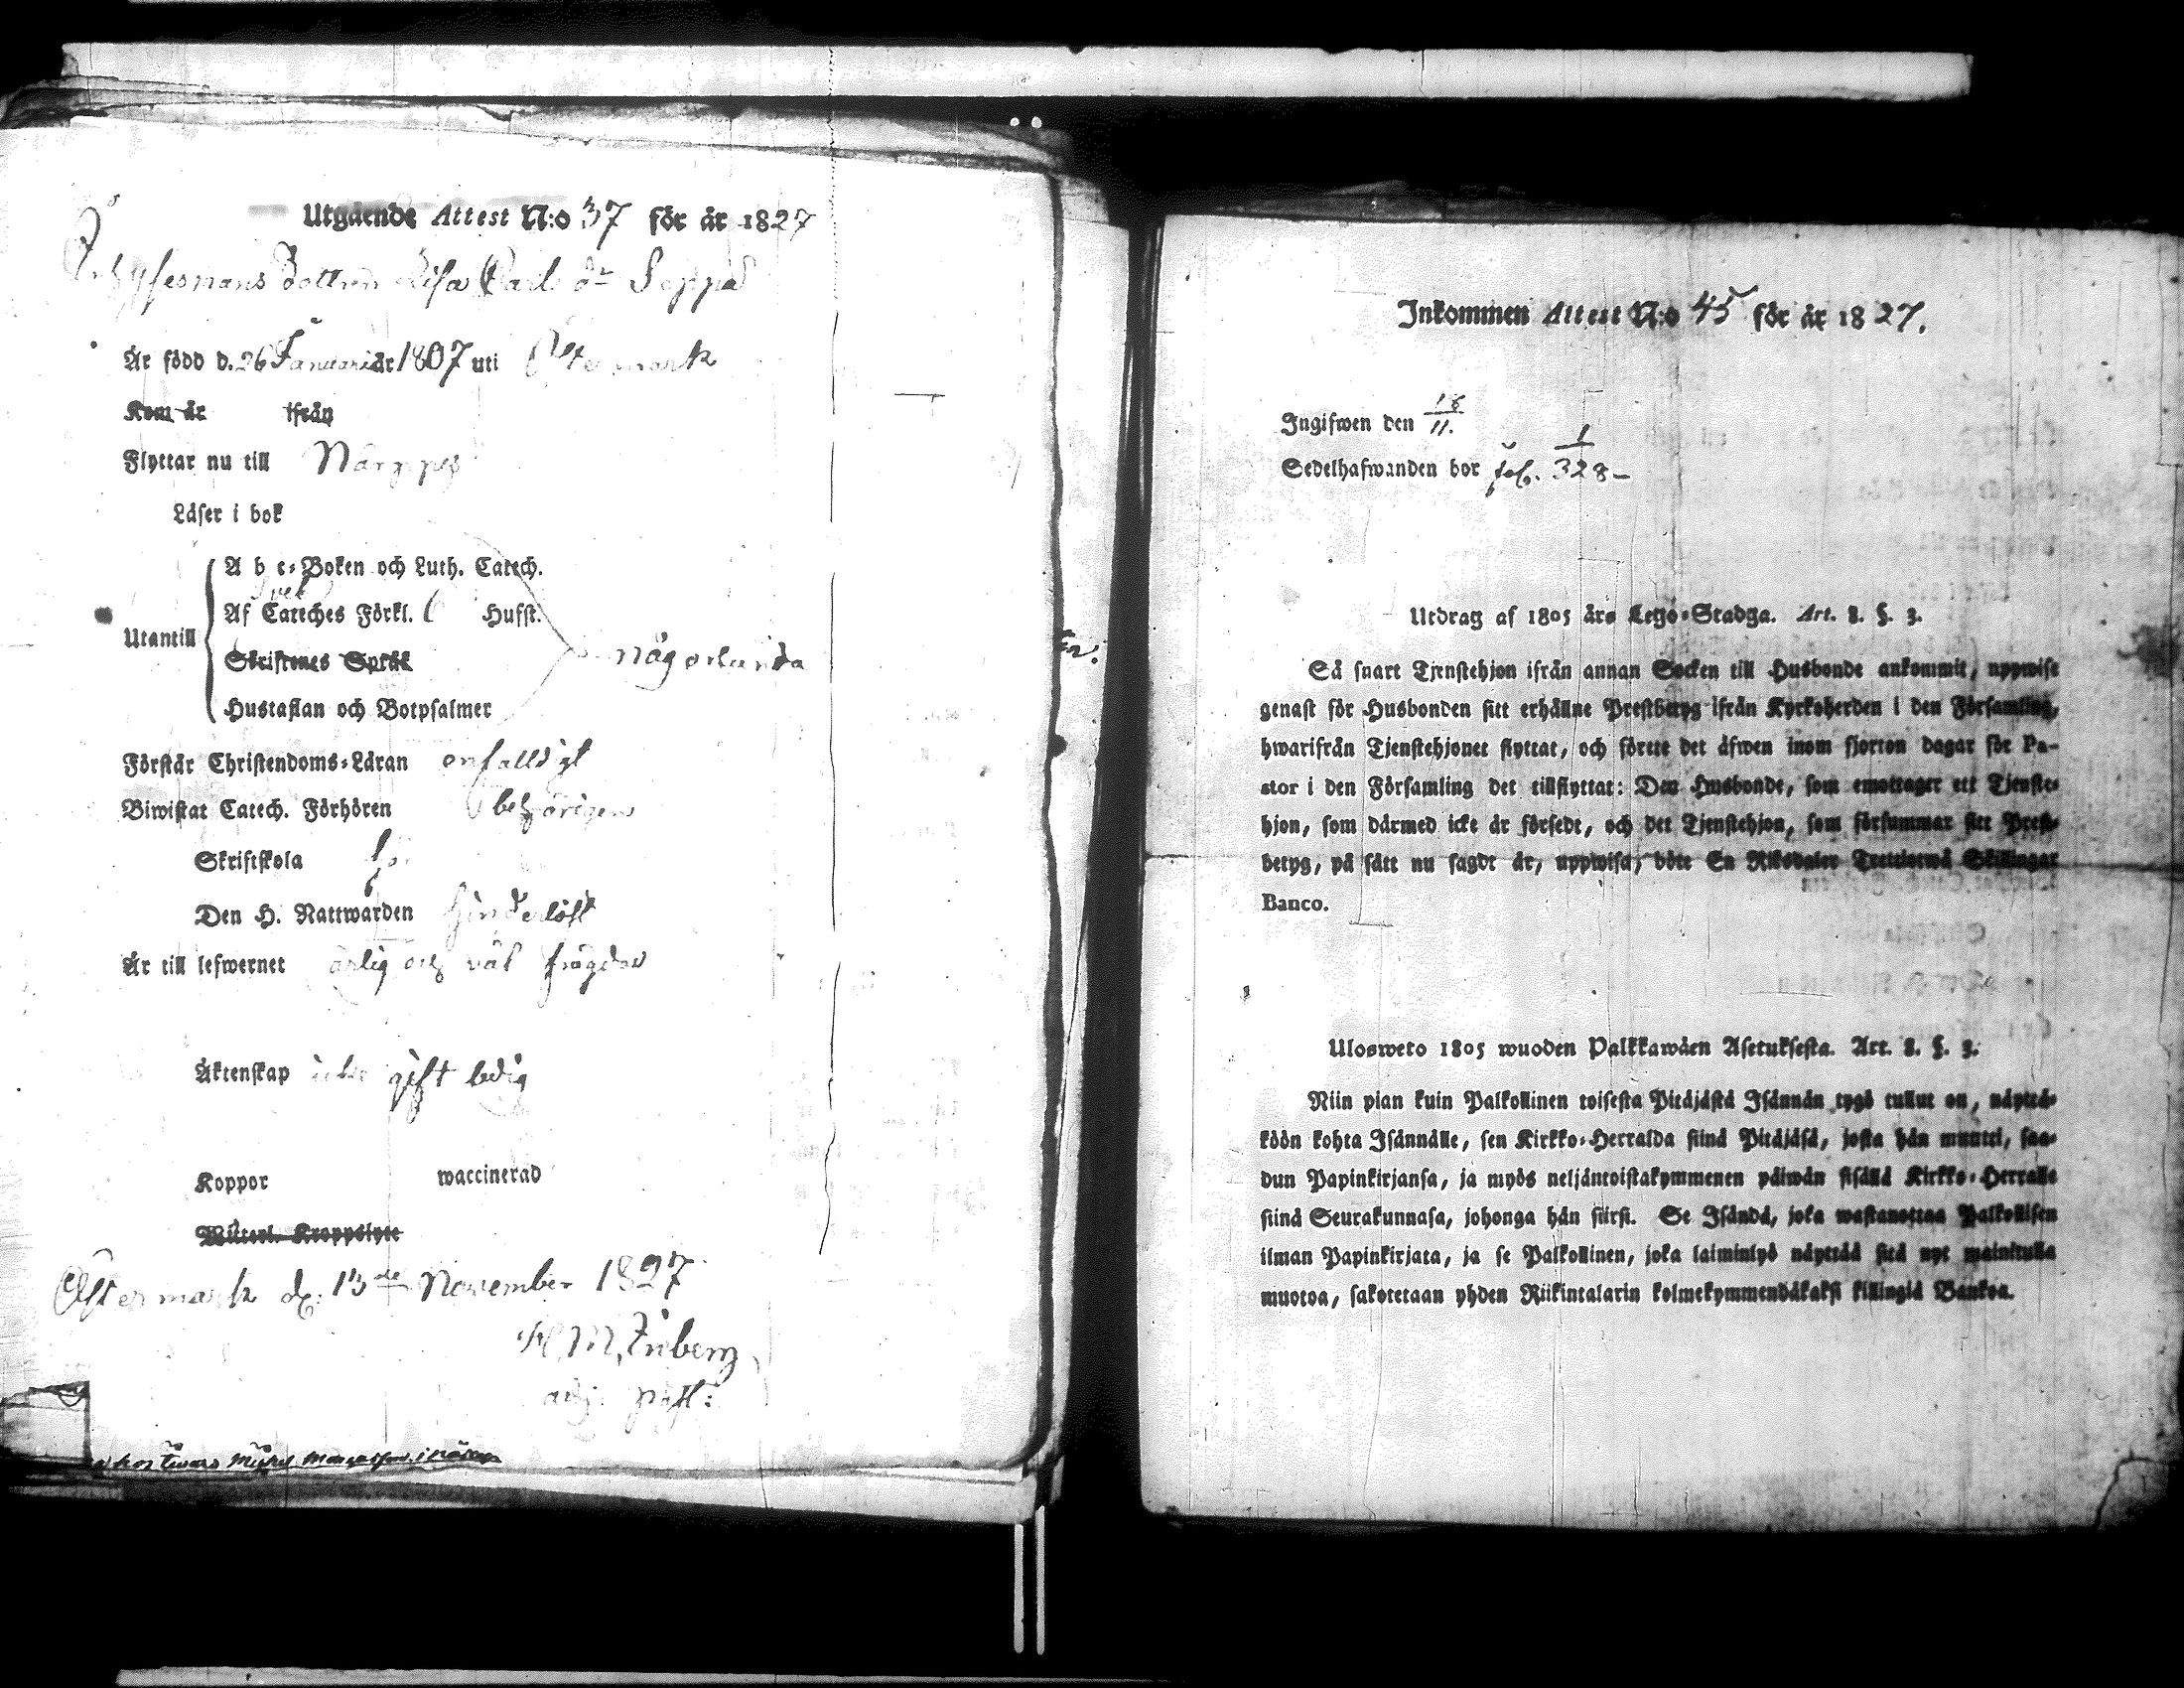 Utgående Attest N:o 37 för år 1827
Inhysesmans Dottren Lisa Carls dr Soppa
Är född d. 26 Januari år 1807 uti Östermark
Kom år ifrån
Flyttar nu till Närpes
Läser i bok
A b c-Boken och Luth. Catech.
Af Cateches Förkl. Hufst.
Utantill
Skriftenes Språk någorlunda
Hustaflan och Botpsalmer
Förstår Christendoms-Läran enfaldigt
Biwistat Catech. Förhören behörigen
Skriftskola
Den H. Nattwarden hinderlöst
Är till lefwernet ärlig och väl frägdad
Äktenskap icke gift ledig
Koppor waccinerad
Witterl. Kroppslyte
Östermark d: 13de November 1827
adj: past:
Inkommen Attest N:o 45 för år 1827.
Ingifwen den 18/11.
Sedelhafwanden bor fol. 1/328-
Utdrag af 1805 års Lego-Stadga. Art. 8. §. 3.
Så snart Tjenstehjon ifrån annan Socken till Husbonde ankommit, uppwise
genast för Husbonden sitt erhållne Prestbetyg ifrån Kyrkoherden i den Församling,
hwarifrån Tjenstehjonet flyttat, och förete det äfwen inom fjorton dagar för Pa-
stor i den Församling det tillflyttat: Den Husbonde, som emottager ett Tjenste-
hjon, som därmed icke är försedt, och det Tjenstehjon, som försummar sitt Prest-
betyg, på sätt nu sagdt är, uppwisa, böte En Riksdaler Trettiotwå Skillingar
Banco.
Ulosweto 1805 wuoden Palkkawäen Asetuksesta. Art. 8. §. 3.
Niin pian kuin Palkollinen toisesta Pitäjästä Isännän tygö tullut on, näyttä-
köön kohta Isännälle, sen Kirkko-Herralda siinä Pitäjäsä, josta hän muutti, saa-
dun Papinkirjansa, ja myös neljäntoistakymmenen päiwän sisällä Kirkko-Herralle
siinä Seurakunnasa, johonga hän siirsi. Se Isändä, joka wastanottaa Palkollisen
ilman Papinkirjata, ja se Palkollinen, joka laiminlyö näyttää sitä nyt mainitulla
muotoa, sakotetaan yhden Riikintalarin kolmekymmendäkaksi killingiä Bankoa.